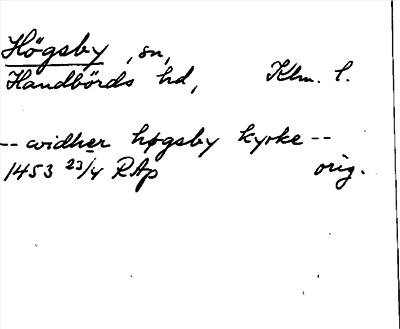 Högsby, sn,
Handbörds hd, Klm. l.
-- widher høgsby kyrke --
1453 23/4 RAp orig.